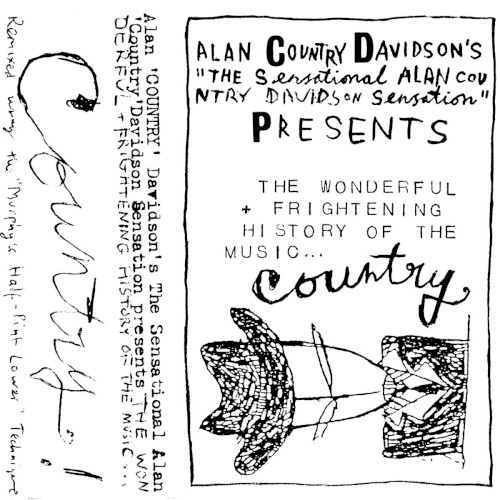 Alan 'COUNTRY' Davidson's The Sensational Alan
'Country' Davidson Sensation presents THE WON
DERFUL + FRIGHTENING HISTORY OF THE MUSIC...
Country..!
Remixed using the "Murphy's Half-Pint Lower" Technique
ALAN COUNTRY DAVIDSON'S
"THE Sensational ALAN COU
NTRY DAVIDSON Sensation"
PRESENTS
THE WONDERFUL
+ FRIGHTENING
HISTORY OF THE
MUSIC...
country